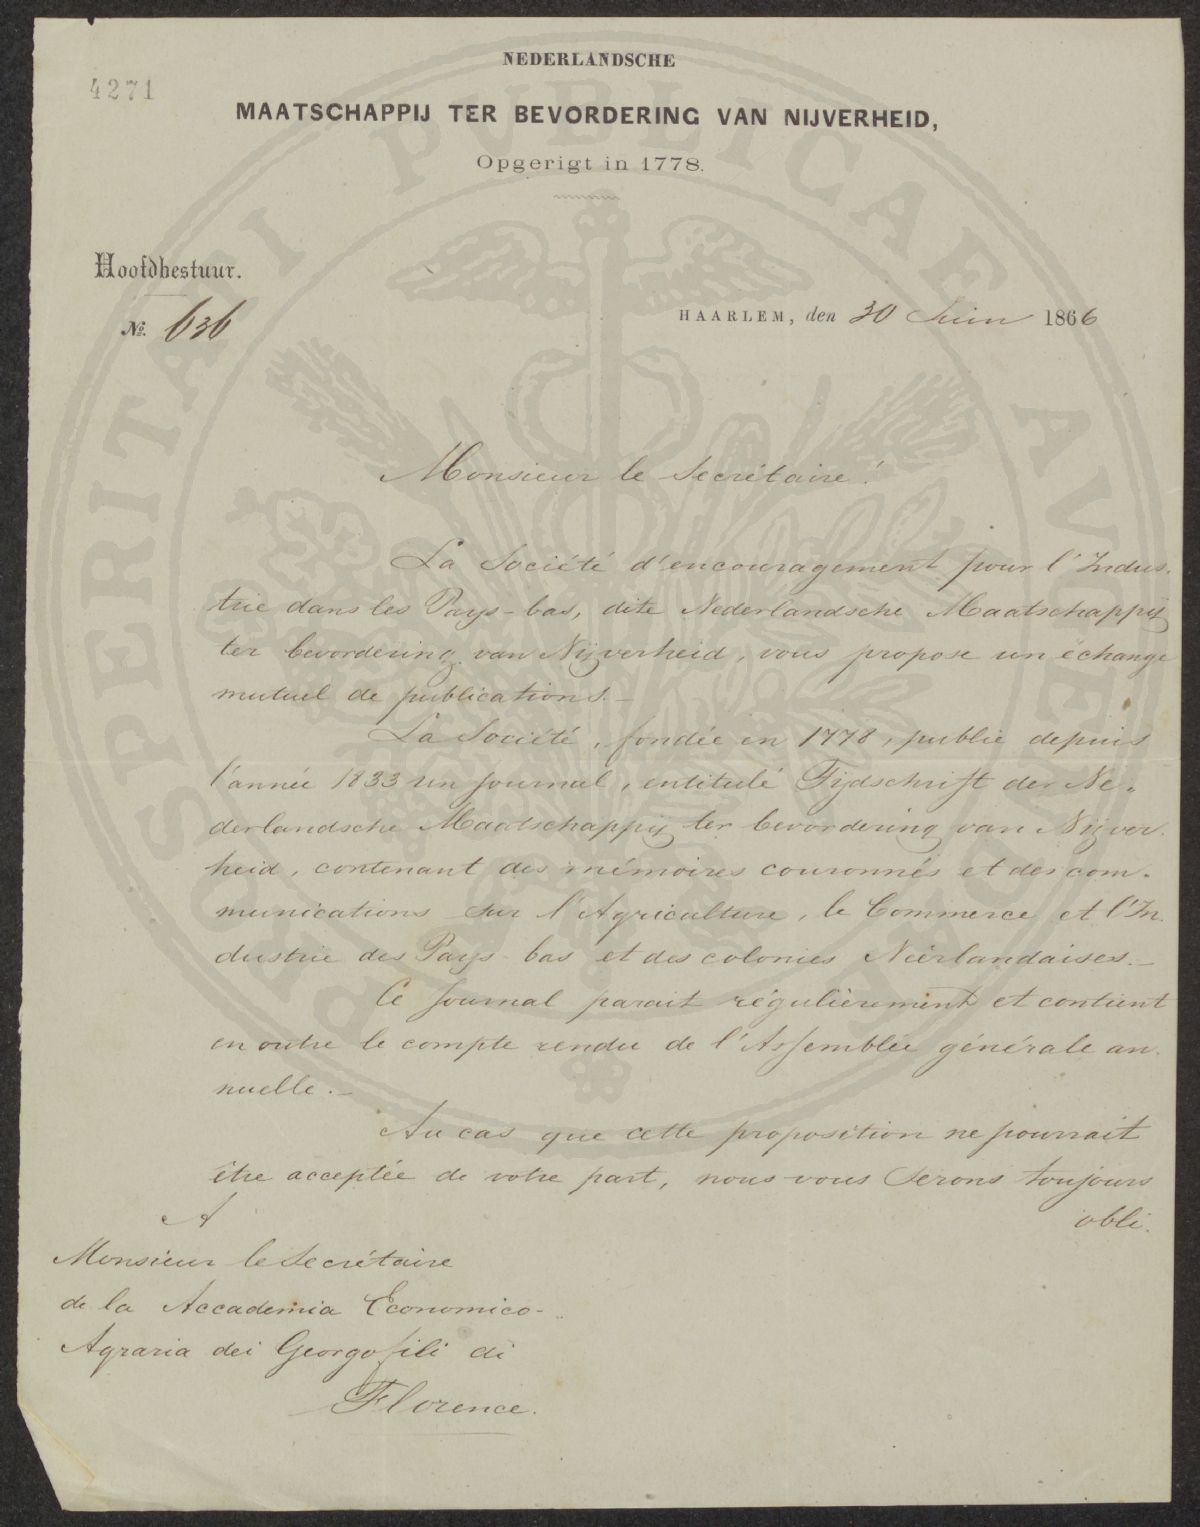 NEDERLANDSCHE
4271
MAATSCHAPPIJ TER BEVORDERING VAN NIJVERHEID,
Opgerigt in 1778.
Hoofdbestuur.
No. 636
HAARLEM, den 30 Juin 1866
Monsieur le Secrétaire!
La Société d'encouragement pour l'Indus-
trie dans les Pays-bas, dite Nederlandsche Maatschappij
ter bevordering van Nijverheid, vous propose un échange
mutuel de publications.—
La Société, fondée en 1778, publie depuis
l'année 1833 un journal, entitulé Tijdschrift der Ne-
derlandsche Maatschappij ter bevordering van Nijver-
heid, contenant des mémoires couronnés et des com-
munications sur l'Agriculture, le Commerce et l'In-
dustrie des Pays-bas et des colonies Néerlandaises.—
Ce journal parait régulièrement et contient
en outre le compte rendu de l'Assemblée générale an-
nuelle.—
Au cas que cette proposition ne pourrait
être acceptée de votre part, nous vous serons toujours
obli-
A
Monsieur le Secrétaire
de la Accademia Economico-
Agraria dei Georgofili di
Florence.
PROSPERITATI PUBLICAE AVGENDAE